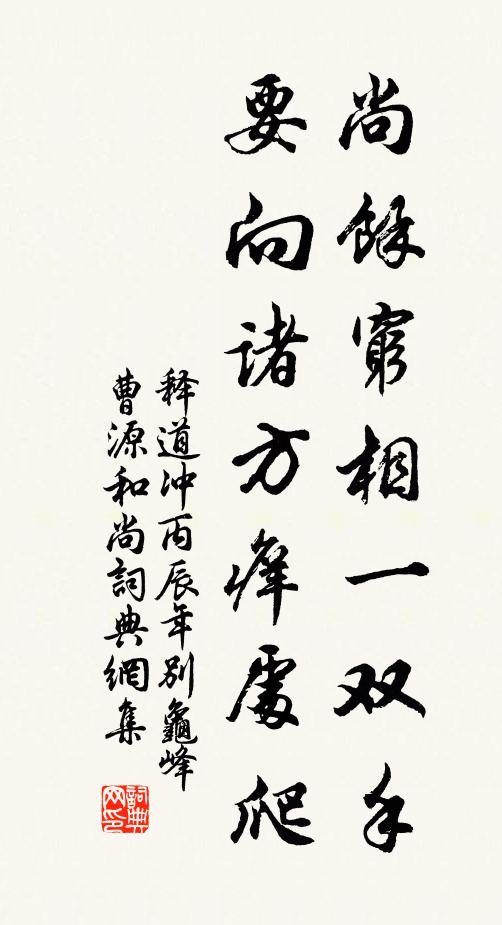 尚餘窮相一双手
要向諸方痒處爬
释道冲丙辰年别龜峰
曹源和尚詞典網集
詞典网印